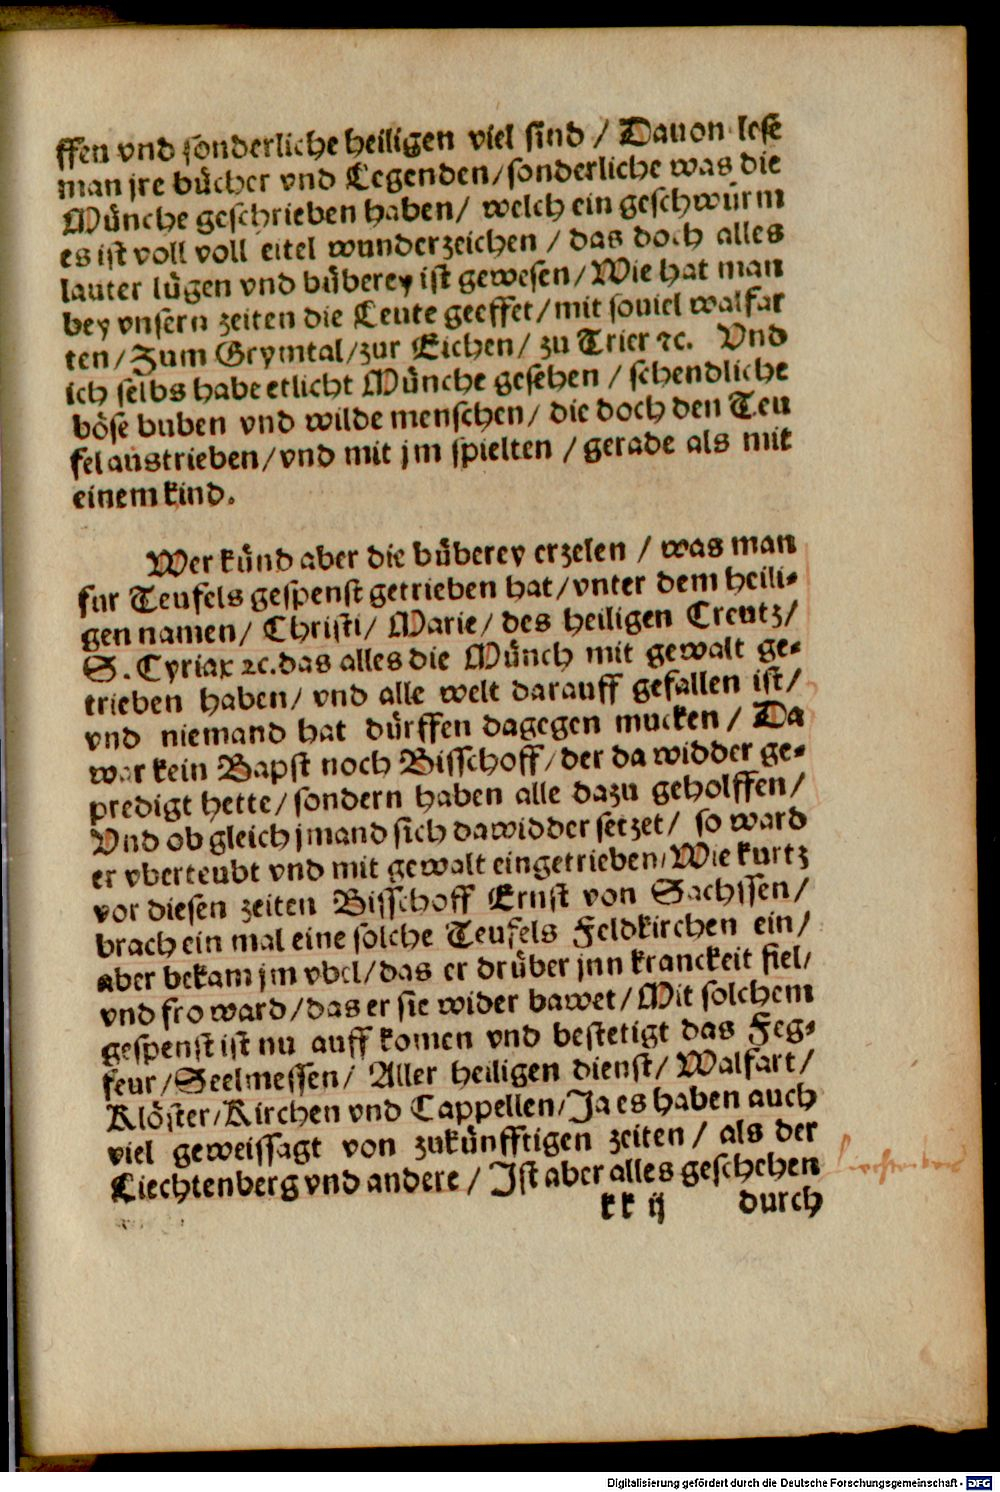 ffen vnd sonderliche heiligen viel sind / Dauon lese
man jre bücher vnd Legenden/sonderliche was die
Münche geschrieben haben/ welch ein geschwürm
es ist voll voll eitel wunderzeichen / das doch alles
lauter lügen vnd büberey ist gewesen/Wie hat man
bey vnsern zeiten die Leute geeffet/mit souiel walfar
ten/Zum Grymtal/zur Eichen/ zu Trier ꝛc. Vnd
ich selbs habe etlicht Münche gesehen / schendliche
böse buben vnd wilde menschen/ die doch den Teu
fel austrieben/vnd mit jm spielten / gerade als mit
einem kind.
Wer künd aber die büberey erzelen / was man
fur Teufels gespenst getrieben hat/vnter dem heili⸗
gen namen/ Christi/ Marie/ des heiligen Creutz/
S. Cyriax ꝛc. das alles die Münch mit gewalt ge⸗
trieben haben/ vnd alle welt darauff gefallen ist/
vnd niemand hat dürffen dagegen mucken / Da
war kein Bapst noch Bisschoff/der da widder ge⸗
predigt hette/sondern haben alle dazu geholffen/
Vnd ob gleich jmand sich dawidder setzet/ so ward
er vberteubt vnd mit gewalt eingetrieben/Wie kurtz
vor diesen zeiten Bisschoff Ernst von Sachssen/
brach ein mal eine solche Teufels Feldkirchen ein/
aber bekam jm vbel/das er drüber jnn kranckeit fiel/
vnd fro ward/das er sie wider bawet/Mit solchem
gespenst ist nu auff komen vnd bestetigt das Feg⸗
feur/Seelmessen/ Aller heiligen dienst/ Walfart/
Klöster/Kirchen vnd Cappellen/Ja es haben auch
viel geweissagt von zukünfftigen zeiten/ als der
Liechtenberg vnd andere / Ist aber alles geschehen
kk ij durch
Digitalisierung gefördert durch die Deutsche Forschungsgemeinschaft - DFG